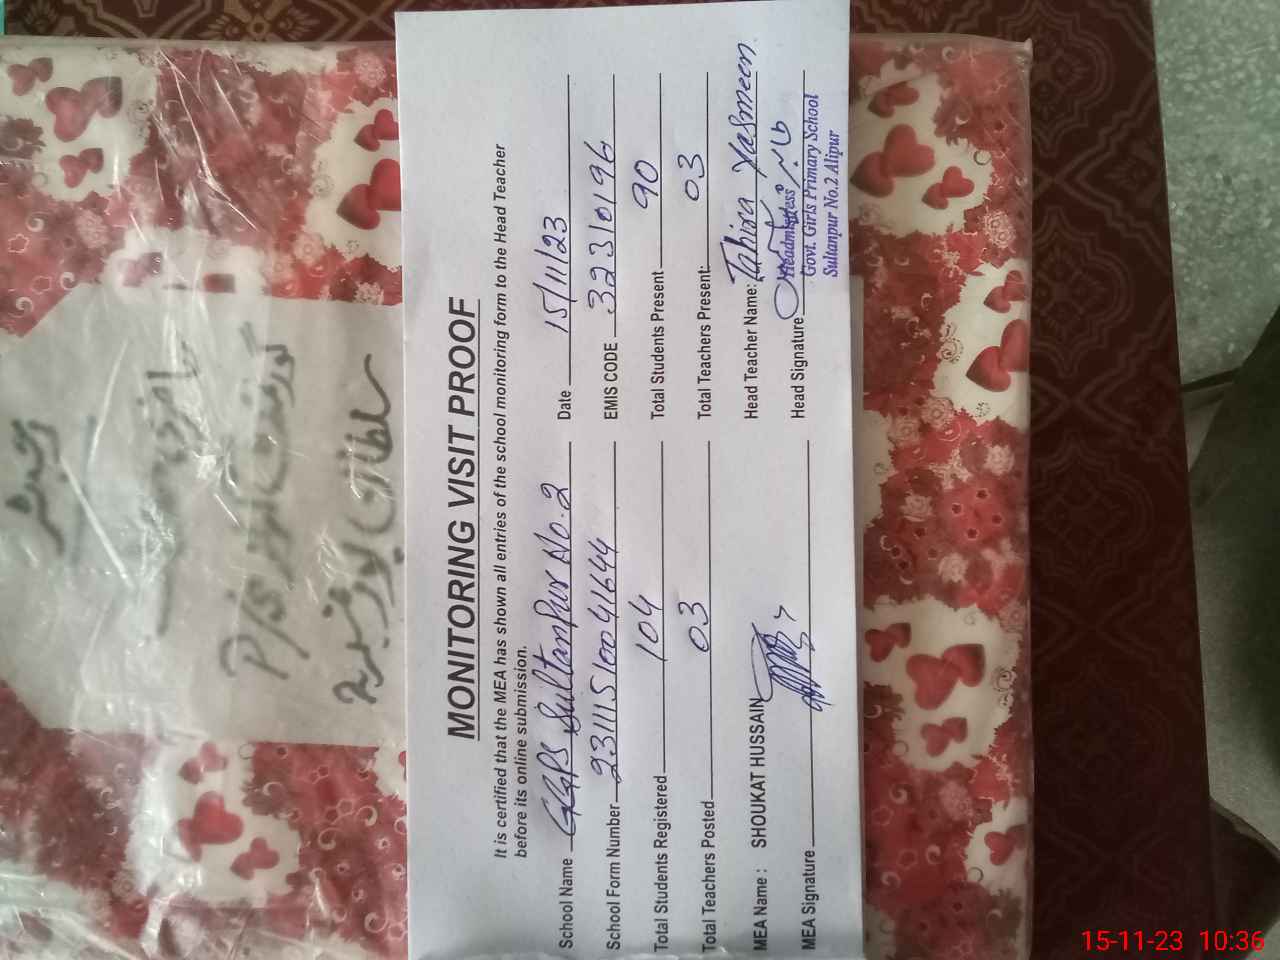 MONITORING VISIT PROOF
It is certified that the MEA has shown all entries of the school monitoring form to the Head Teacher
before its online submission.
School Name GGPS Sultanpur No.2 Date 15/11/23
School Form Number 231115100041644 EMIS CODE 32310196
Total Students Registered 104 Total Students Present 90
Total Teachers Posted 03 Total Teachers Present: 03
MEA Name : SHOUKAT HUSSAIN Head Teacher Name: Tahira Yasmeen
MEA Signature Head Signature
Headmistress
Govt. Girls Primary School
Sultanpur No.2 Alipur
رجسٹر
P/S
15-11-23 10:36